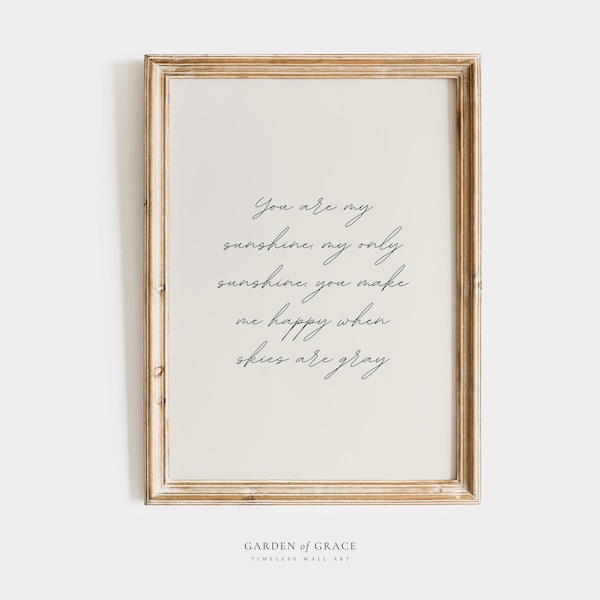 You are my
sunshine, my only
sunshine, you make
me happy when
skies are gray
GARDEN of GRACE
TIMELESS WALL ART